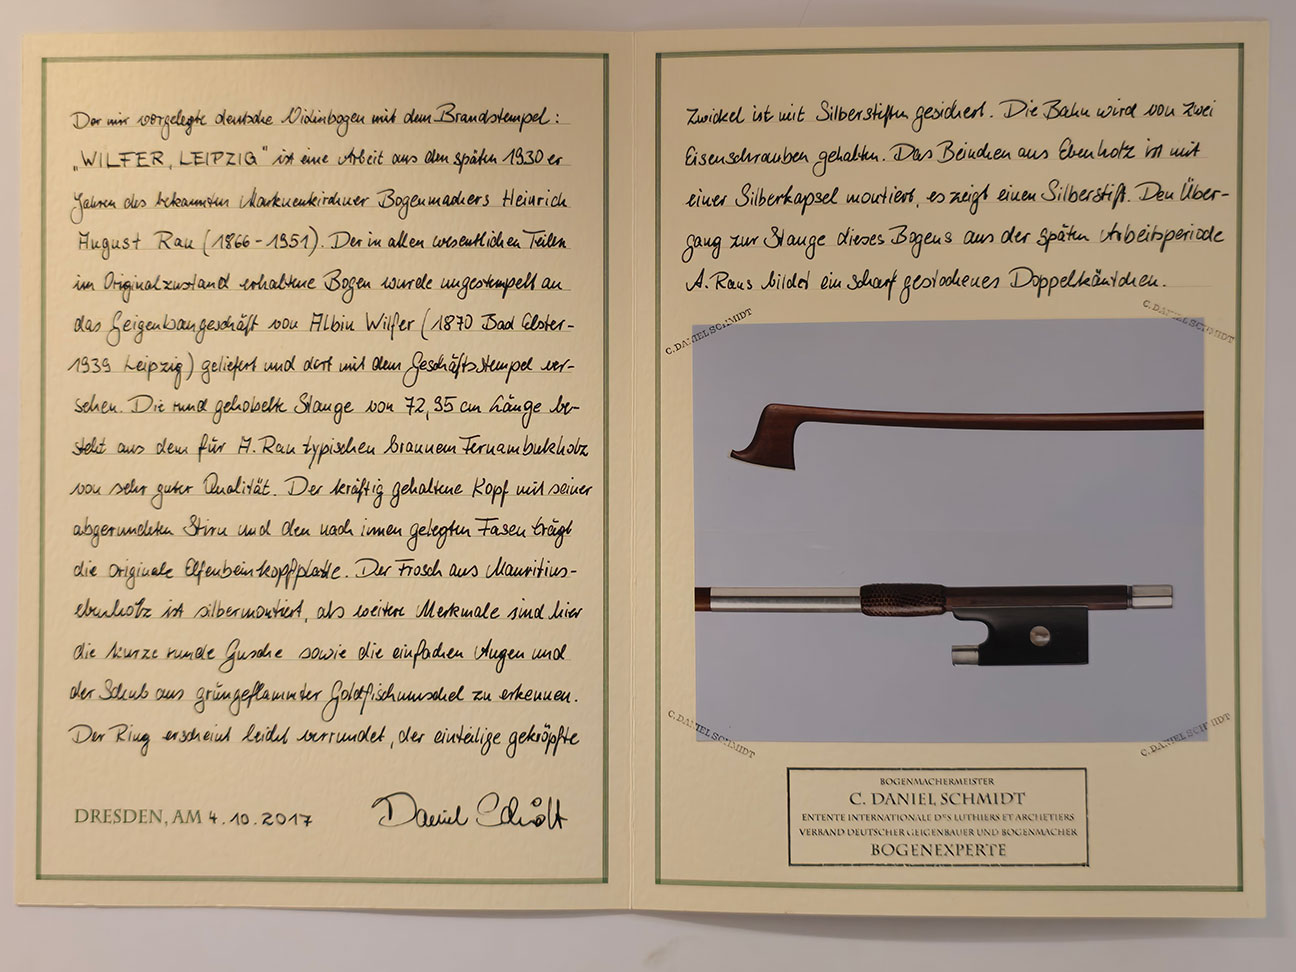 Der mir vorgelegte deutsche Violinbogen mit dem Brandstempel:
„WILFER, LEIPZIG" ist eine Arbeit aus den späten 1930er
Jahren des bekannten Markneukirchner Bogenmachers Heinrich
August Rau (1866-1951). Der in allen wesentlichen Teilen
im Originalzustand erhaltene Bogen wurde ungestempelt an
das Geigenbaugeschäft von Albin Wilfer (1870 Bad Elster-
1939 Leipzig) geliefert und dort mit dem Geschäftsstempel ver-
sehen. Die rund gehobelte Stange von 72,95 cm Länge be-
steht aus dem für A. Rau typischen braunem Fernambukholz
von sehr guter Qualität. Der kräftig gehaltene Kopf mit seiner
abgerundeten Stirn und den nach innen gelegten Fasen trägt
die originale Elfenbeinkopfplatte. Der Frosch aus Mauritius-
ebenholz ist silbermontiert, als weitere Merkmale sind hier
die kurze runde Gusche sowie die einfachen Augen und
der Schub aus grüngeflammter Goldfischmuschel zu erkennen.
Der Ring erscheint leicht verrundet, der einteilige gekröpfte
DRESDEN, AM 4.10.2017
Daniel Schmidt
Zwickel ist mit Silberstiften gesichert. Die Bahn wird von zwei
Eisenschrauben gehalten. Das Beinchen aus Ebenholz ist mit
einer Silberkapsel montiert, es zeigt einen Silberstift. Den Über-
gang zur Stange dieses Bogens aus der späten Arbeitsperiode
A. Raus bildet ein scharf gestochenes Doppelkäntchen.
C. DANIEL SCHMIDT
C. DANIEL SCHMIDT
C. DANIEL SCHMIDT
C. DANIEL SCHMIDT
BOGENMACHERMEISTER
C. DANIEL SCHMIDT
ENTENTE INTERNATIONALE DES LUTHIERS ET ARCHETIERS
VERBAND DEUTSCHER GEIGENBAUER UND BOGENMACHER
BOGENEXPERTE